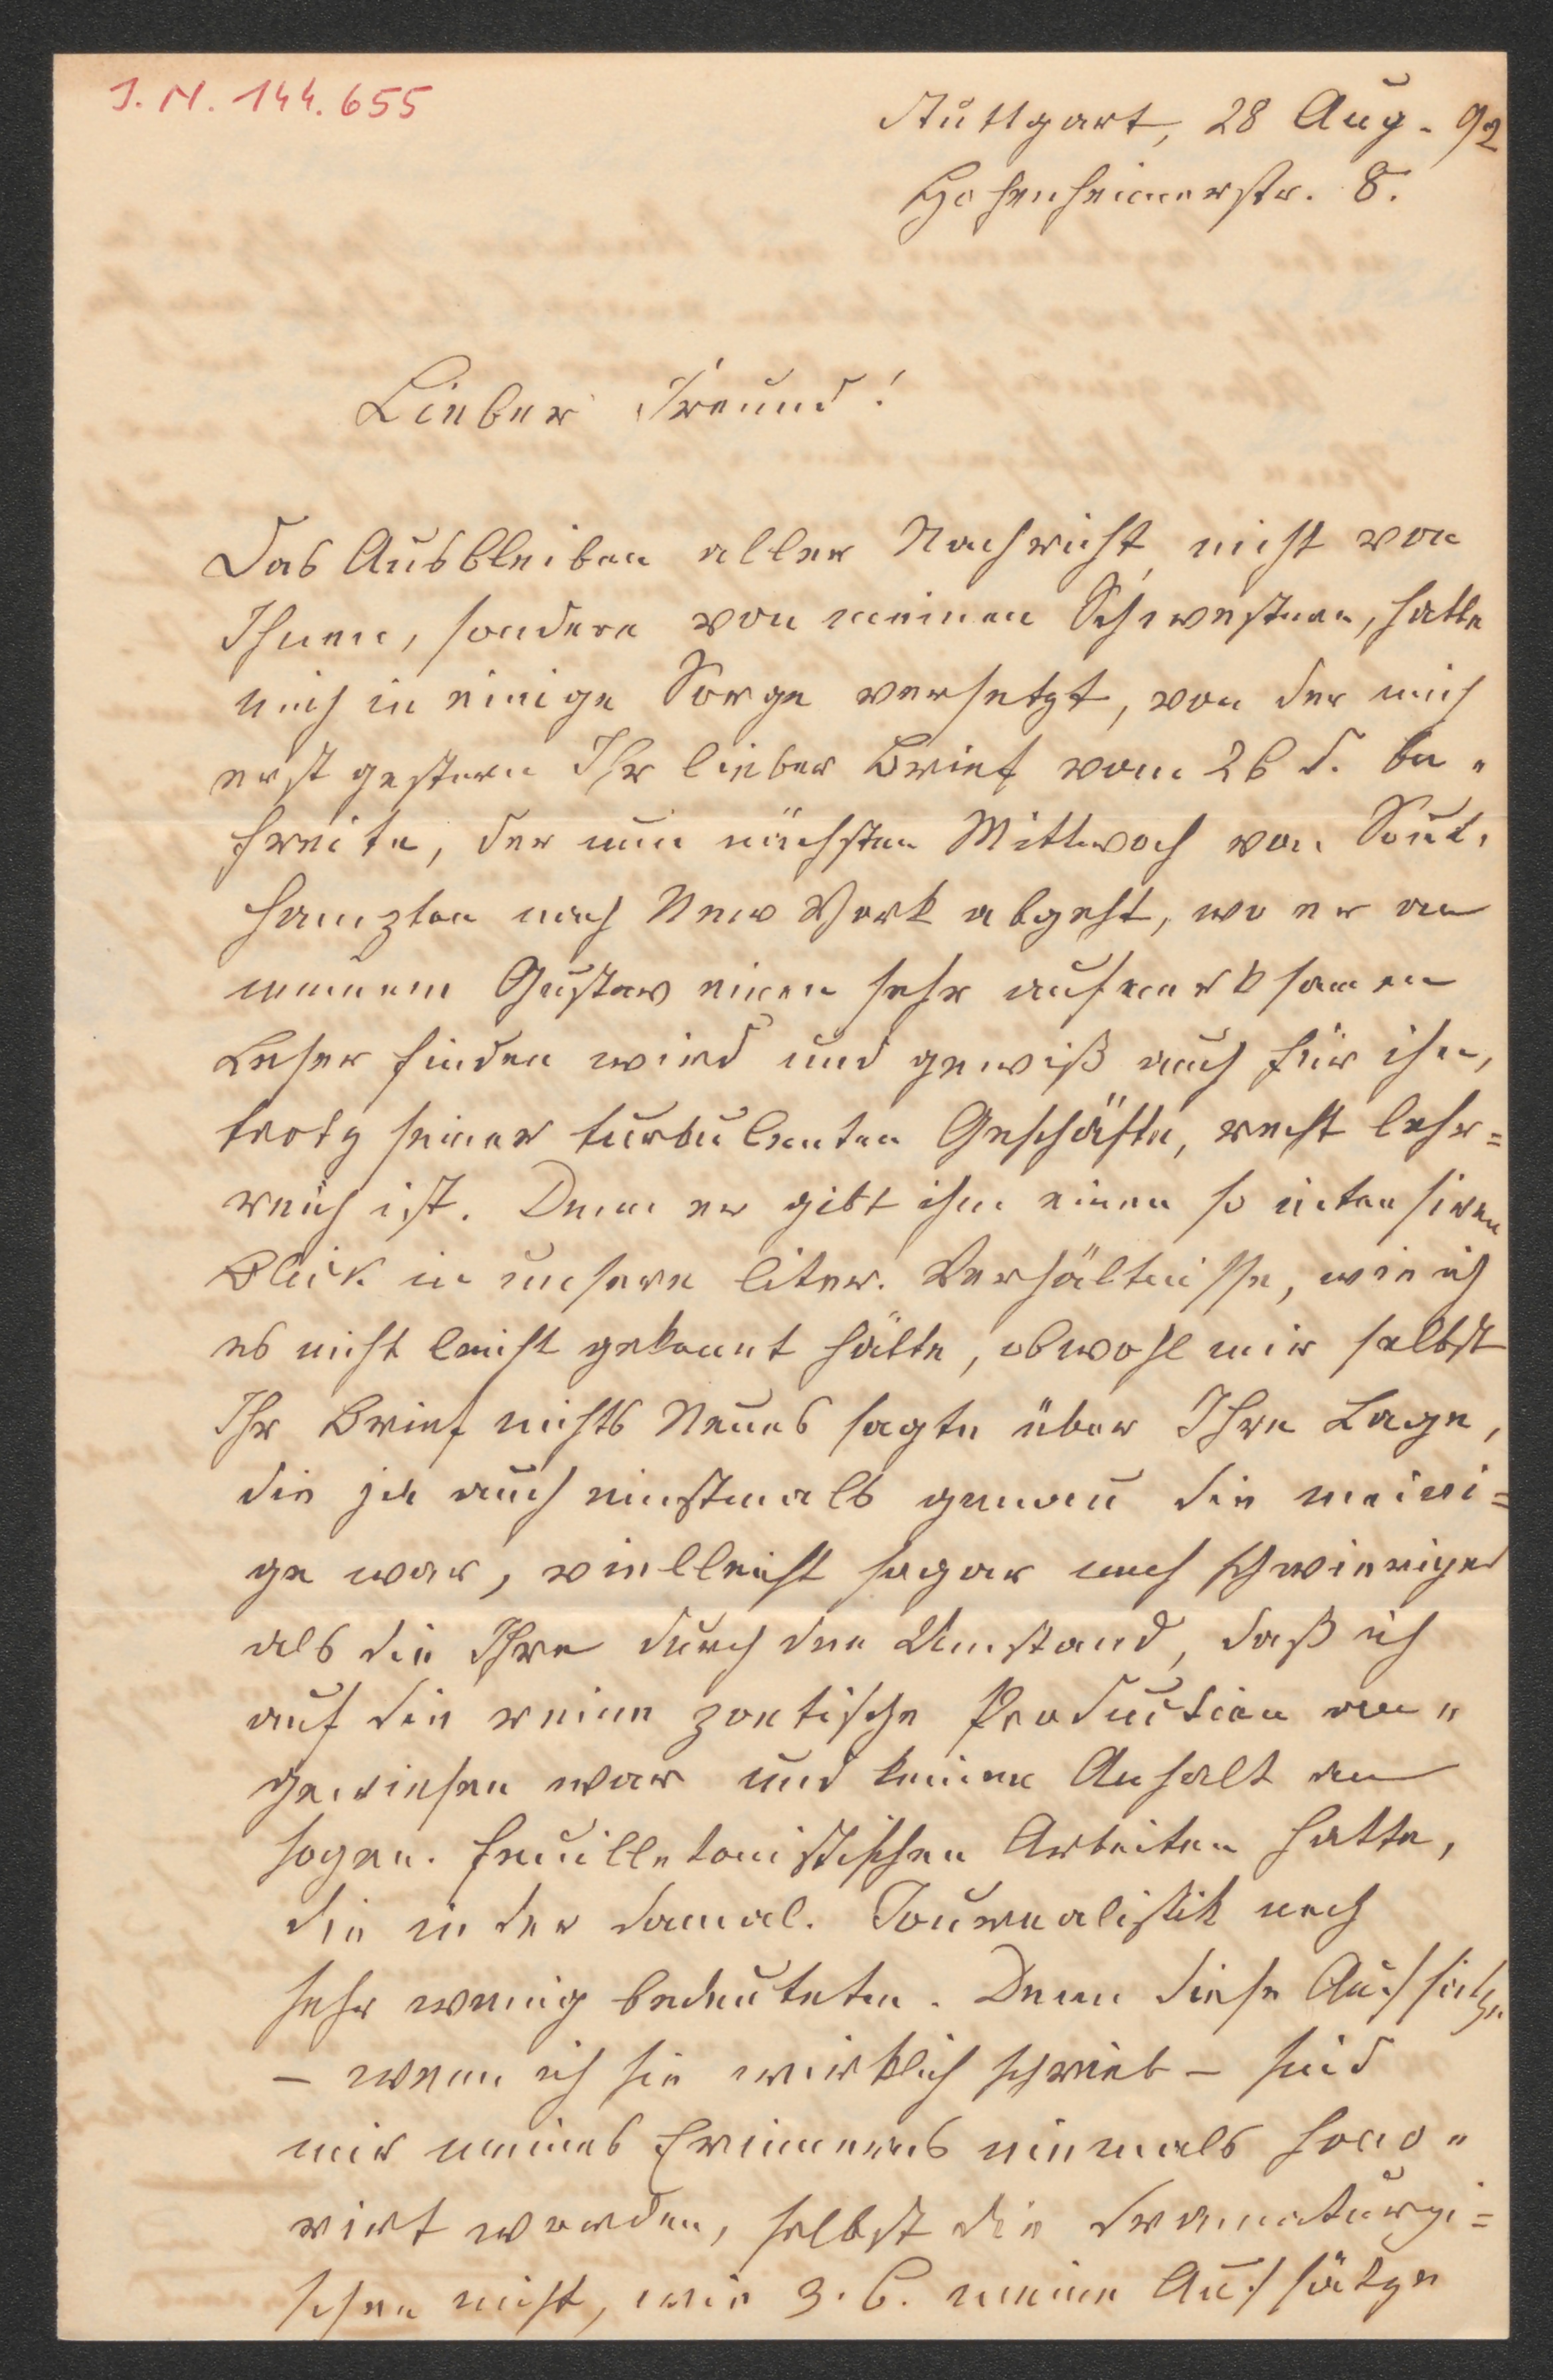 J. N. 144.655
Stuttgart, 28 Aug. 92
Hohenheimerstr. 8.
Lieber Freund!
Das Ausbleiben aller Nachricht, nicht von
Ihnen, sondern von meinen Schwestern, hatte
mich in einige Sorge versetzt, von der mich
erst gestern Ihr lieber Brief vom 26 d. be-
freite, der nun nächsten Mittwoch von Sout-
hampton nach New York abgeht, wo er an
meinem Gustav einen sehr aufmerksamen
Leser finden wird und gewiß auch für ihn,
trotz seiner turbulenten Geschäfte, recht lehr=
reich ist. Denn er gibt ihm einen so intensiven
Blick in unsere liter. Verhältnisse, wie ich
es nicht leicht gekonnt hätte, obwohl mir selbst
Ihr Brief nichts Neues sagte über Ihre Lage,
die ja auch einstmals genau die meini=
ge war, vielleicht sogar noch schwieriger
als die Ihre durch den Umstand, daß ich
auf die reine poetische Production an-
gewiesen war und keinen Anhalt an
sogen. feuilletonistischen Arbeiten hatte,
die in der damal. Journalistik noch
sehr wenig bedeuteten. Denn diese Aufsätze
– wenn ich sie wirklich schrieb – sind
mir meines Erinnerns niemals hono-
rirt worden, selbst die dramaturgi=
schen nicht, wie z. B. meine Aufsätze